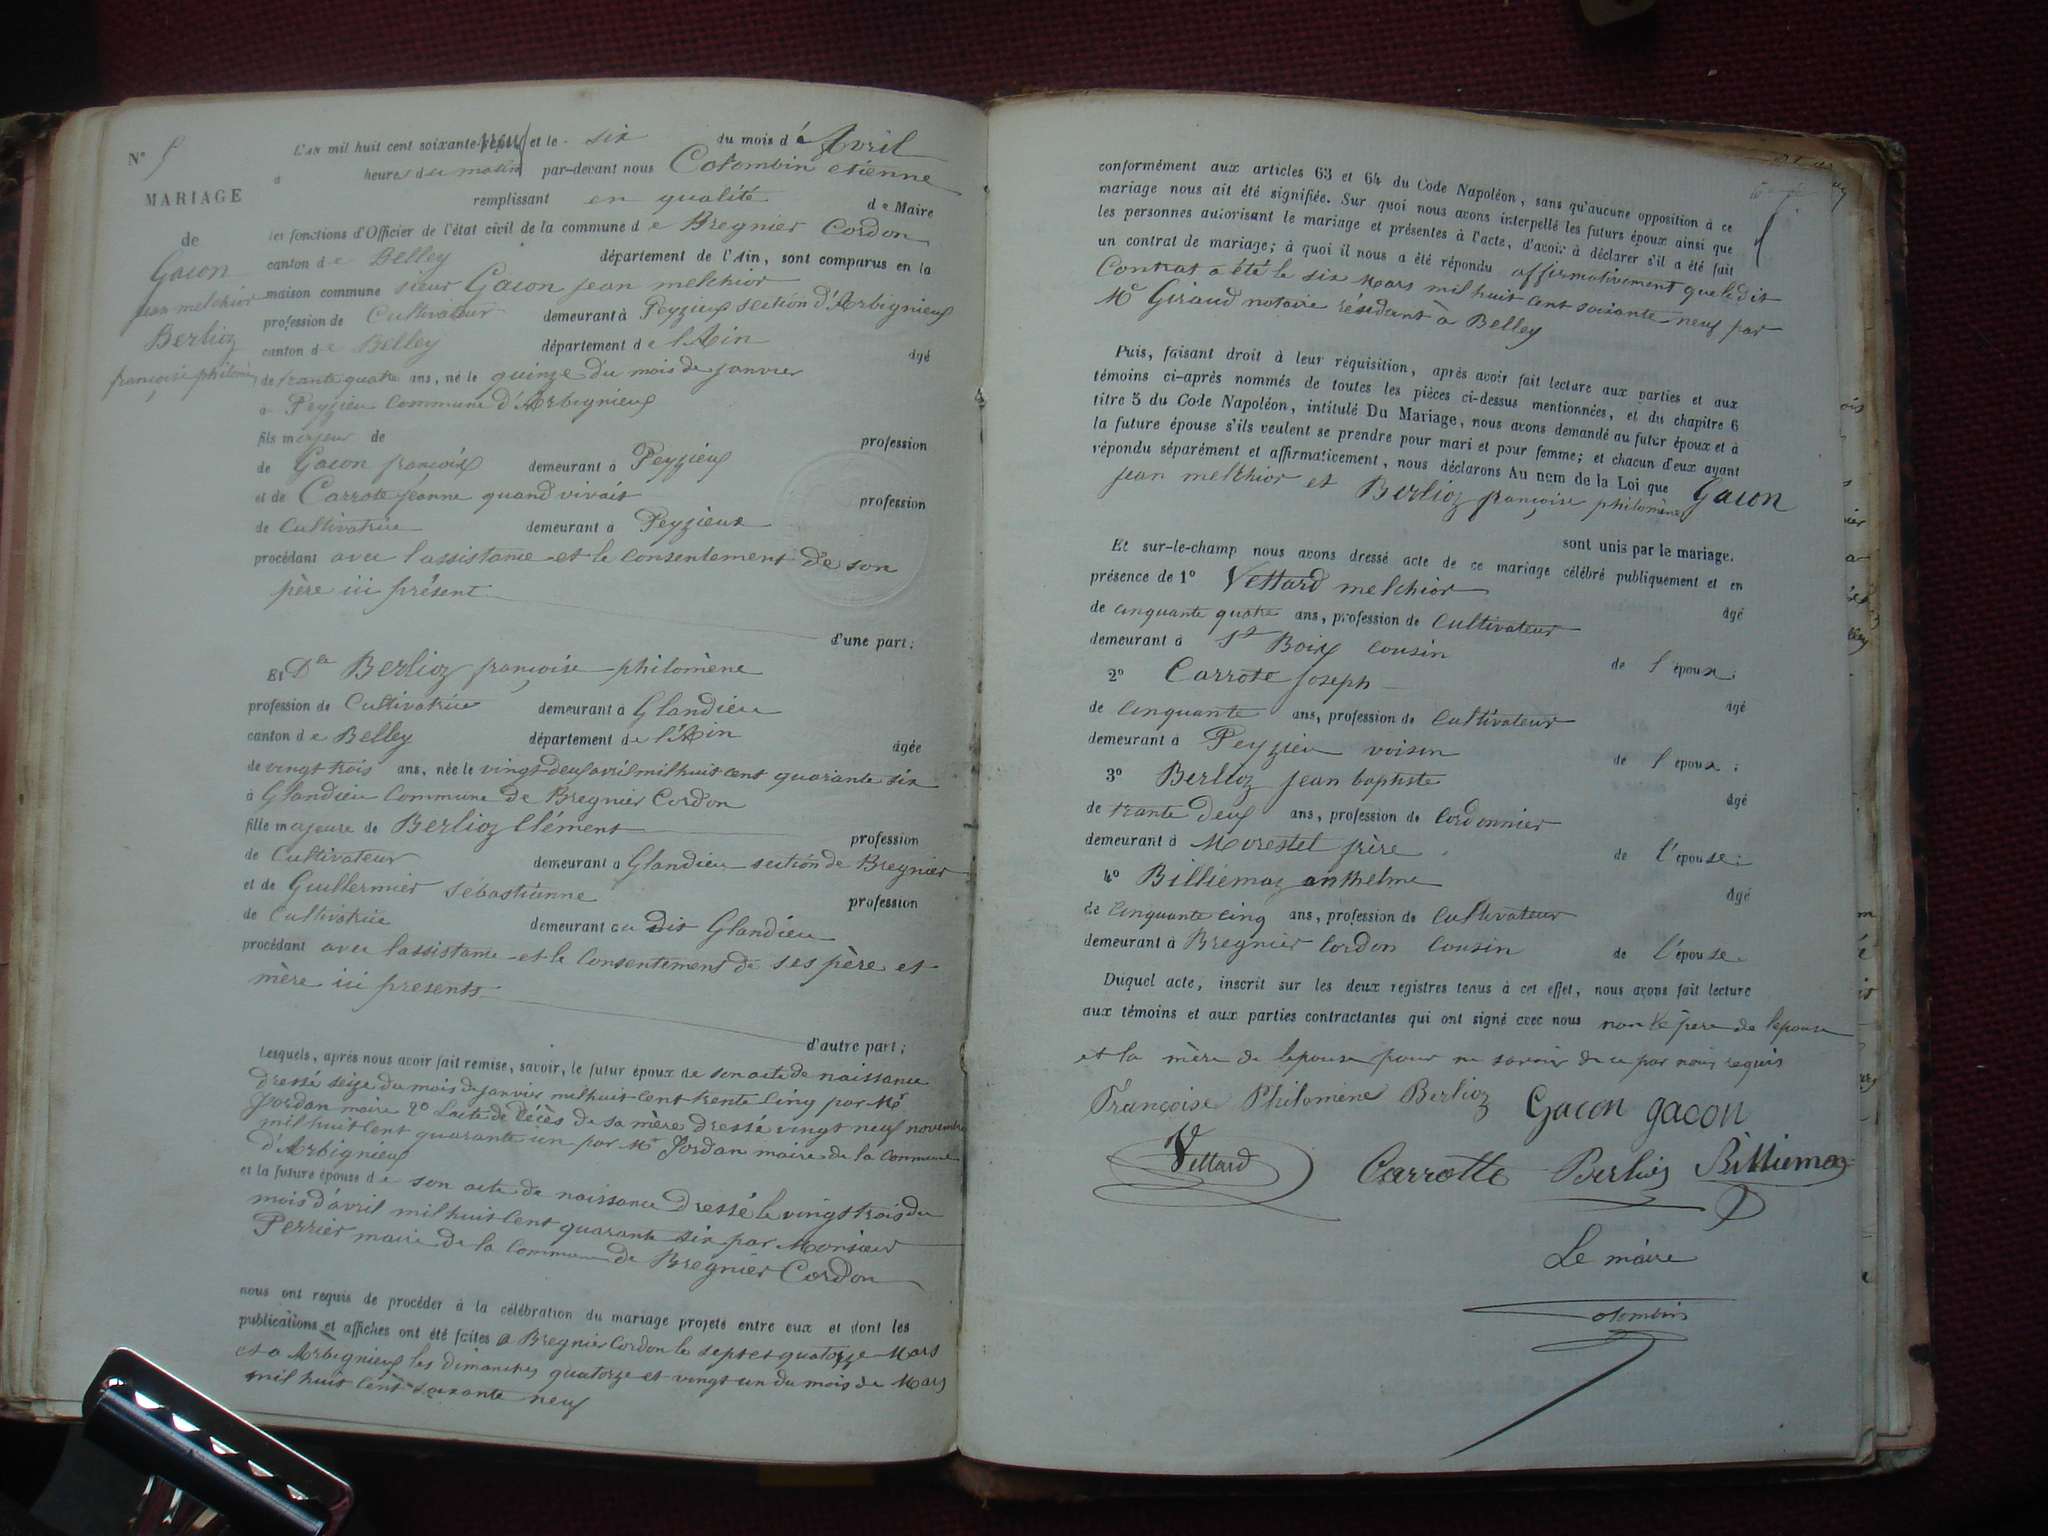 N° 5
MARIAGE
de
Gacon
jean melchior
Berlioz
françoise philomène
L'AN mil huit cent soixante neuf et le six du mois d'Avril
à heures du matin par-devant nous Colombin etienne
remplissant en qualité de Maire
les fonctions d'Officier de l'état civil de la commune de Bregnier Cordon
canton de Belley département de l'Ain, sont comparus en la
maison commune sieur Gacon jean melchior
profession de Cultivateur demeurant à Peyzieux section d'Arbignieux
canton de Belley département de l'Ain âgé
de trante quatre ans, né le quinze du mois de janvier
à Peyzieu Commune d'Arbignieux
fils majeur de profession
de Gacon françois demeurant à Peyzieux
et de Carrote jeanne quand vivait profession
de Cultivatrice demeurant à Peyzieux
procédant avec l'assistance et le consentement de son
père ici présent
d'une part;
Et Dlle Berlioz françoise philomène
profession de Cultivatrice demeurant à Glandieu
canton de Belley département de l'Ain âgée
de vingt trois ans, née le vingt deux avril mil huit cent quarante six
à Glandieu Commune de Bregnier Cordon
fille majeure de Berlioz Clément profession
de Cultivateur demeurant à Glandieu section de Bregnier
et de Guillermier sébastianne profession
de Cultivatrice demeurant au dit Glandieu
procédant avec l'assistance et le Consentement de ses père et
mère ici presents
d'autre part;
Lesquels, après nous avoir fait remise, savoir, le futur époux de son acte de naissance
dressé seize du mois de janvier mil huit cent trente cinq par Mr
Jordan maire 2° L'acte de décès de sa mère dressé vingt neuf novembre
mil huit cent quarante un par Mr Jordan maire de la Commune
d'Arbignieux
et la future épouse de son acte de naissance dressé le vingt trois du
mois d'avril mil huit cent quarante six par Monsieur
Perrier maire de la Commune de Bregnier Cordon
nous ont requis de procéder à la célébration du mariage projeté entre eux et dont les
publications et affiches ont été faites à Bregnier Cordon le sept et quatorze Mars
et a Arbignieux les dimanches quatorze et vingt un du mois de Mars
mil huit cent soixante neuf
conformément aux articles 63 et 64 du Code Napoléon, sans qu'aucune opposition à ce
mariage nous ait été signifiée. Sur quoi nous avons interpellé les futurs époux ainsi que
les personnes autorisant le mariage et présentes à l'acte, d'avoir à déclarer s'il a été fait
un contrat de mariage; à quoi il nous a été répondu affirmativement que le dit
Contrat a été le six Mars mil huit cent soixante neuf par
Mr Giraud notaire résidant à Belley
Puis, faisant droit à leur réquisition, après avoir fait lecture aux parties et aux
témoins ci-après nommés de toutes les pièces ci-dessus mentionnées, et du chapitre 6
titre 5 du Code Napoléon, intitulé Du Mariage, nous avons demandé au futur époux et à
la future épouse s'ils veulent se prendre pour mari et pour femme; et chacun d'eux ayant
répondu séparément et affirmativement, nous déclarons Au nom de la Loi que Gacon
jean melchior et Berlioz françoise philomène
sont unis par le mariage.
Et sur-le-champ nous avons dressé acte de ce mariage célébré publiquement et en
présence de 1° Vettard melchior âgé
de cinquante quatre ans, profession de Cultivateur
demeurant à St Boix cousin de l'époux;
2° Carrote joseph âgé
de cinquante ans, profession de Cultivateur
demeurant à Peyzieu voisin de l'époux;
3° Berlioz jean baptiste âgé
de trante deux ans, profession de Cordonnier
demeurant à Morestel frère de l'épouse;
4° Billiemaz anthelme âgé
de cinquante cinq ans, profession de Cultivateur
demeurant à Bregnier Cordon Cousin de l'épouse.
Duquel acte, inscrit sur les deux registres tenus à cet effet, nous avons fait lecture
aux témoins et aux parties contractantes qui ont signé avec nous non le père de l'epouse
et la mère de l'epouse pour ne savoir de ce par nous requis
Françoise Philomène Berlioz Gacon gacon
Vettard Carrotte Berlioz Billiemaz
Le maire
Colombin